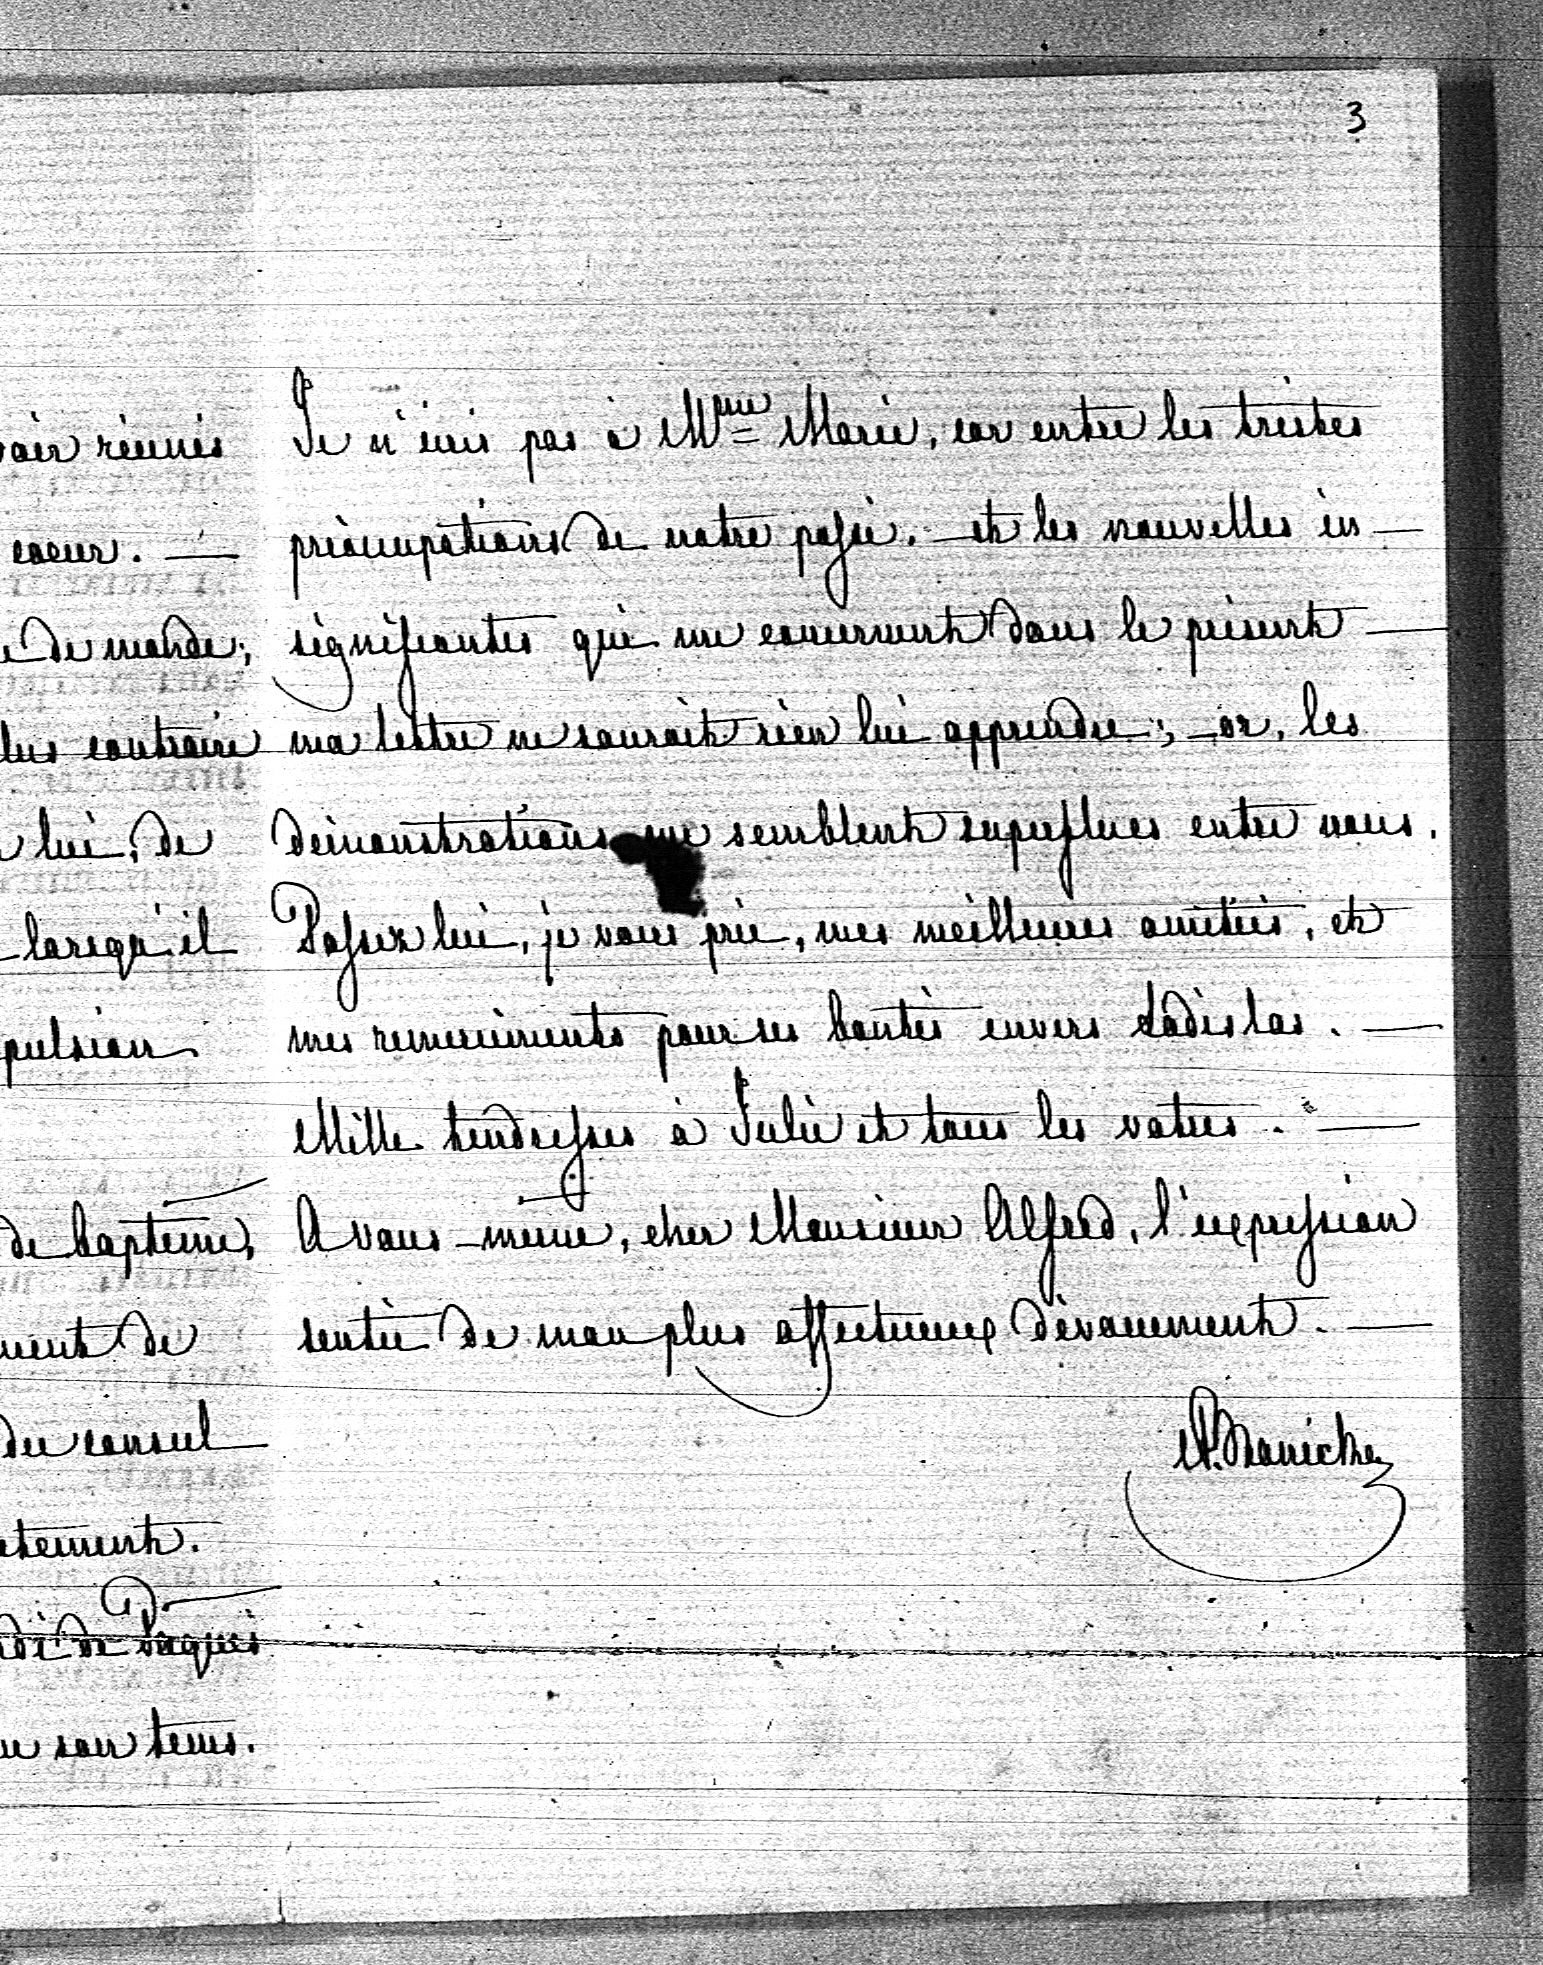 3
Je n'écris pas à Mme Marie, car entre les tristes
préoccupations de notre passé. — et les nouvelles in —
signifiantes qui me concernent dans le présent —
ma lettre ne saurait rien lui apprendre ; — or, les
démonstrations me semblent superflues entre nous.
Passez lui, je vous prie, mes meilleures amitiés, et
mes remerciments pour ses bontés envers Ladislas. —
Mille tendresses à Julie et tous les votres. —
A vous-même, cher Monsieur Alfred, l'expression
sentie de mon plus affectueux dévouement. —
oir réunis
coeur. —
de monde ;
lus contraire
lui, de
lorsqu'il
pulsion
de baptême,
ment de
du consul
tement.
di de Pâques
son tems.